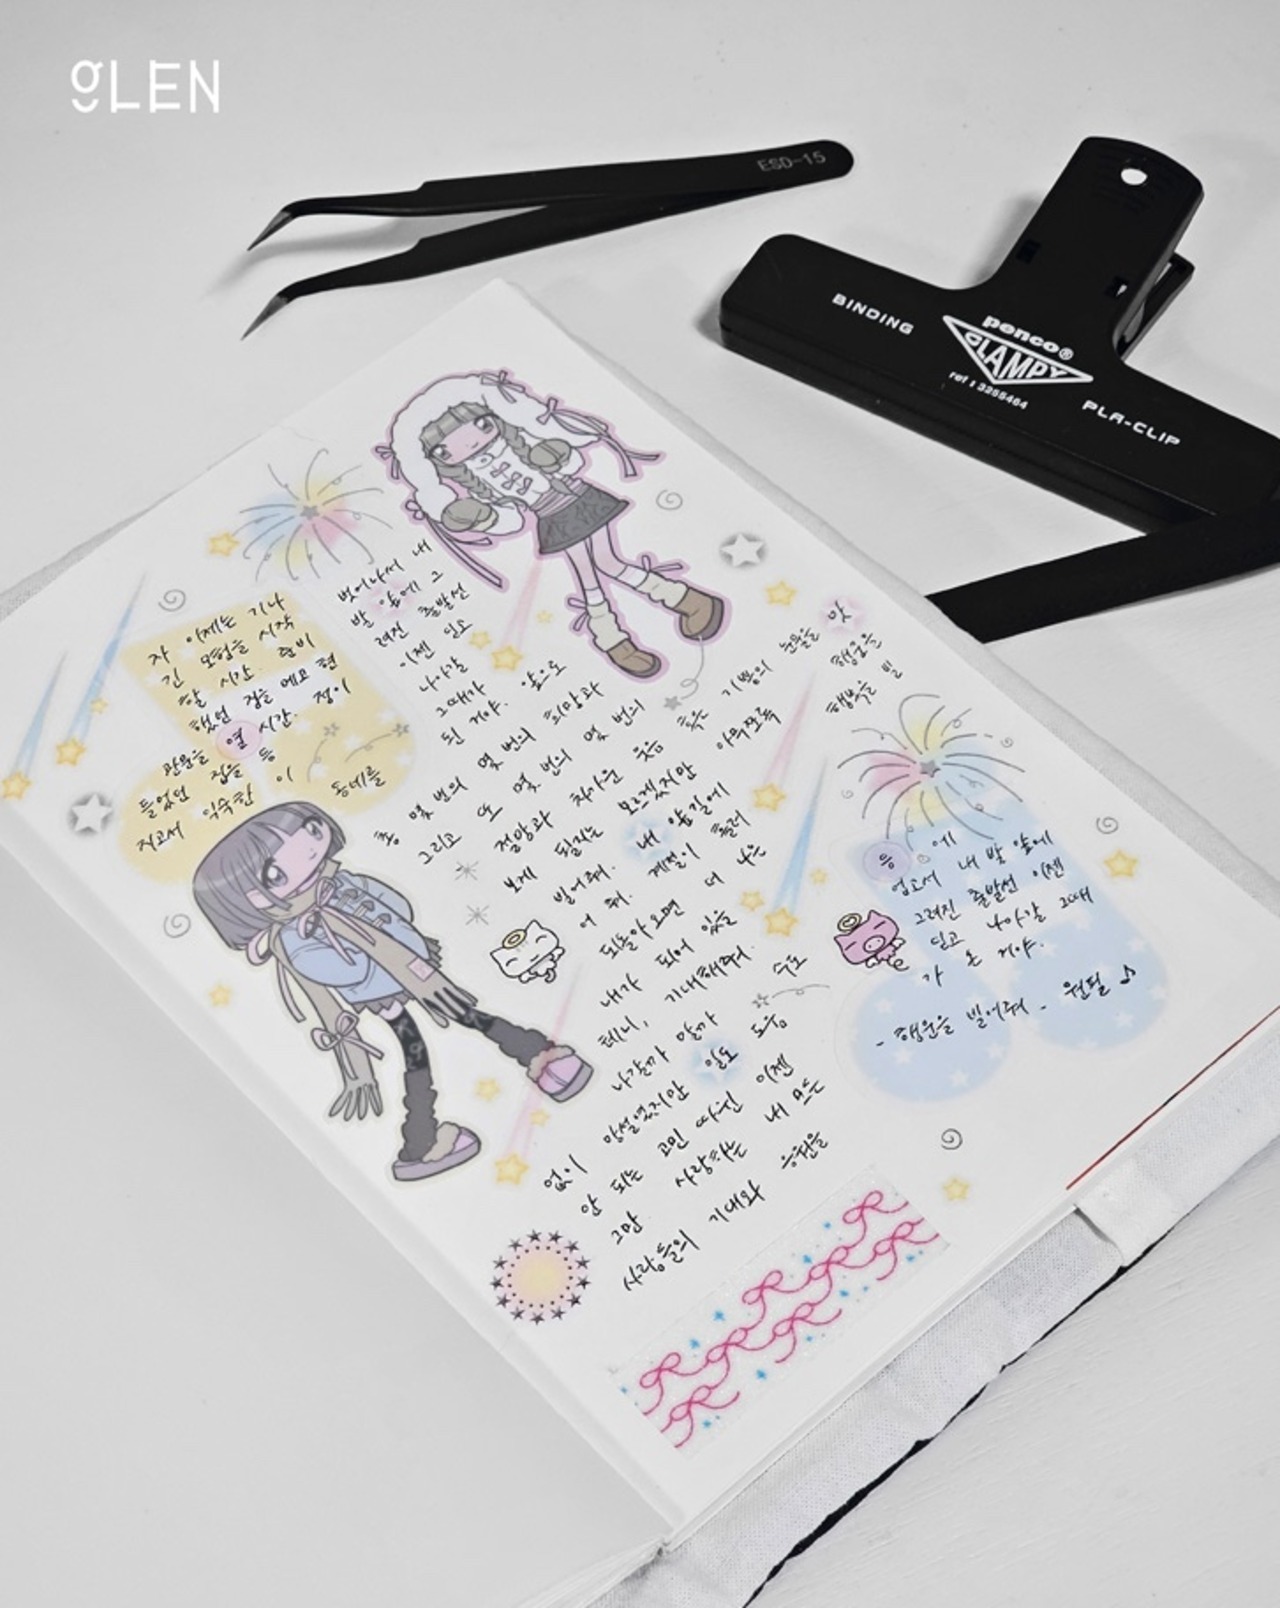 gLEN
ESD-15
BINDING
penco®
CLAMPY
ref : 3255464
PLA-CLIP
자 이제는 기나
긴 모험을 시작
할 시간. 준비
했던 짐을 메고 현
관문을 열 시간. 정이
들었던 집을 등
지고서 익숙한 이 동네를
벗어나서 내
발 앞에 그
려진 출발선
이젠 딛고
나아갈
그때가
된 거야. 앞으로
총 몇 번의 몇 번의 희망과
그리고 또 몇 번의 몇 번의
절망과 차가운 웃음 혹은 기쁨의 눈물을 맛
보게 될지는 모르겠지만 아무쪼록 행운을
빌어줘. 내 앞길에 행복을 빌
어 줘. 계절이 흘러
되돌아오면 더 나은
내가 되어 있을
테니, 기대해줘. 수도
없이 나갈까 말까
망설였지만 일도 도움
안 되는 고민 따윈 이젠
그만 사랑하는 내 모든
사람들의 기대와 응원을
등에
업고서 내 발 앞에
그려진 출발선 이젠
딛고 나아갈 그때
가 온 거야.
- 행운을 빌어줘 - 원필 ♪